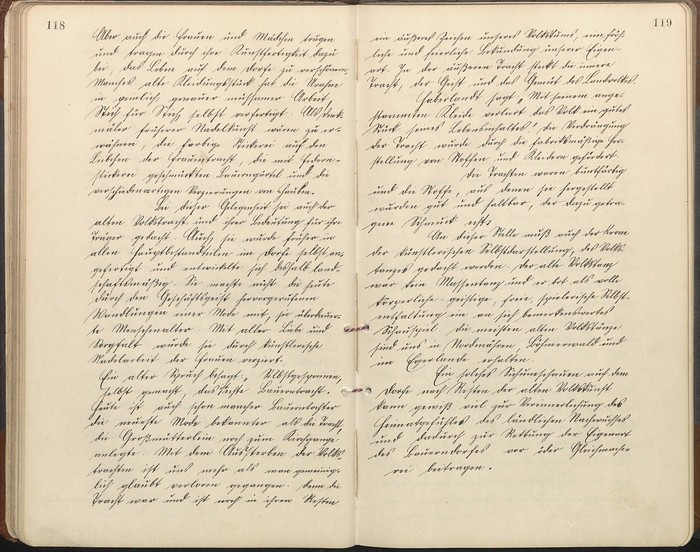 118
Aber auch die Frauen und Mädchen trugen
und tragen durch ihre Kunstfertigkeit dazu
bei, das Leben auf dem Dorfe zu verschönern.
Manches alte Kleidungsstück hat die Ahne
in peinlich genauer mühsamer Arbeit,
Stich für Stich selbst verfertigt. Als Denk-
mäler früherer Nadelkunst wären zu er-
wähnen, die farbige Stickerei auf den
Leibchen der Frauentracht, die mit Federn-
stickerei geschmückten Bauerngürtel und die
verschiedenartigen Verzierungen von Hauben.
Bei dieser Gelegenheit sei auch der
alten Volkstracht und ihrer Bedeutung für ihre
Träger gedacht. Auch sie wurde früher in
allen Hauptbestandteilen im Dorfe selbst an-
gefertigt und entwickelte sich deshalb land-
schaftsmäßig. Sie machte nicht die heute
durch den Geschäftsgeist hervorgerufenen
Wandlungen einer Mode mit, sie überdauer-
te Menschenalter. Mit aller Liebe und
Sorgfalt wurde sie durch künstlerische
Nadelarbeit der Frauen verziert.
Ein alter Spruch besagt: „Selbstgesponnen,
selbst gemacht, das ist echte Bauerntracht.
Heute ist auch schon mancher Bauerntochter
die neueste Mode bekannter als die Tracht,
die Großmütterlein noch zum Kirchgange
anlegte. Mit dem Aussterben der Volks-
trachten ist uns mehr als man gemeinig-
lich glaubt verloren gegangen. Denn die
Tracht war und ist noch in ihren Resten
119
ein äußeres Zeichen unseres Volkstums, eine fröh-
liche und feierliche Bekundung unserer Eigen-
art. In der äußeren Tracht steckt die innere
Tracht, der Geist und das Gemüt des Landvolkes.
Haberlandt sagt: „Mit seinem ange-
stammten Kleide verliert das Volk ein gutes
Stück seines Lebensinhaltes", die Verdrängung
der Tracht wurde durch die fabriksmäßige Her-
stellung von Stoffen und Kleidern gefördert.
Die Trachten waren kunstfertig
und die Stoffe, aus denen sie hergestellt
wurden gut und haltbar, der dazu getra-
gene Schmuck echt.
An dieser Stelle muß auch der Form
der künstlerischen Selbstdarstellung, des Volks-
tanzes gedacht werden. Der alte Volkstanz
war kein Massentanz und er bot als volle
körperliche-geistige, freie, spielerische Selbst-
entfaltung ein an sich bemerkenswertes
Schauspiel. Die meisten alten Volkstänze
sind uns in Nordmähren, Böhmerwald und
im Egerlande erhalten.
Ein solches Sichumschauen auf dem
Dorfe nach Resten der alten Volkskunst
kann gewiß viel zur Verinnerlichung des
Heimatgefühles des ländlichen Nachwuchses
und dadurch zur Rettung der Eigenart
des Bauerndorfes vor öder Gleichmache-
rei beitragen.